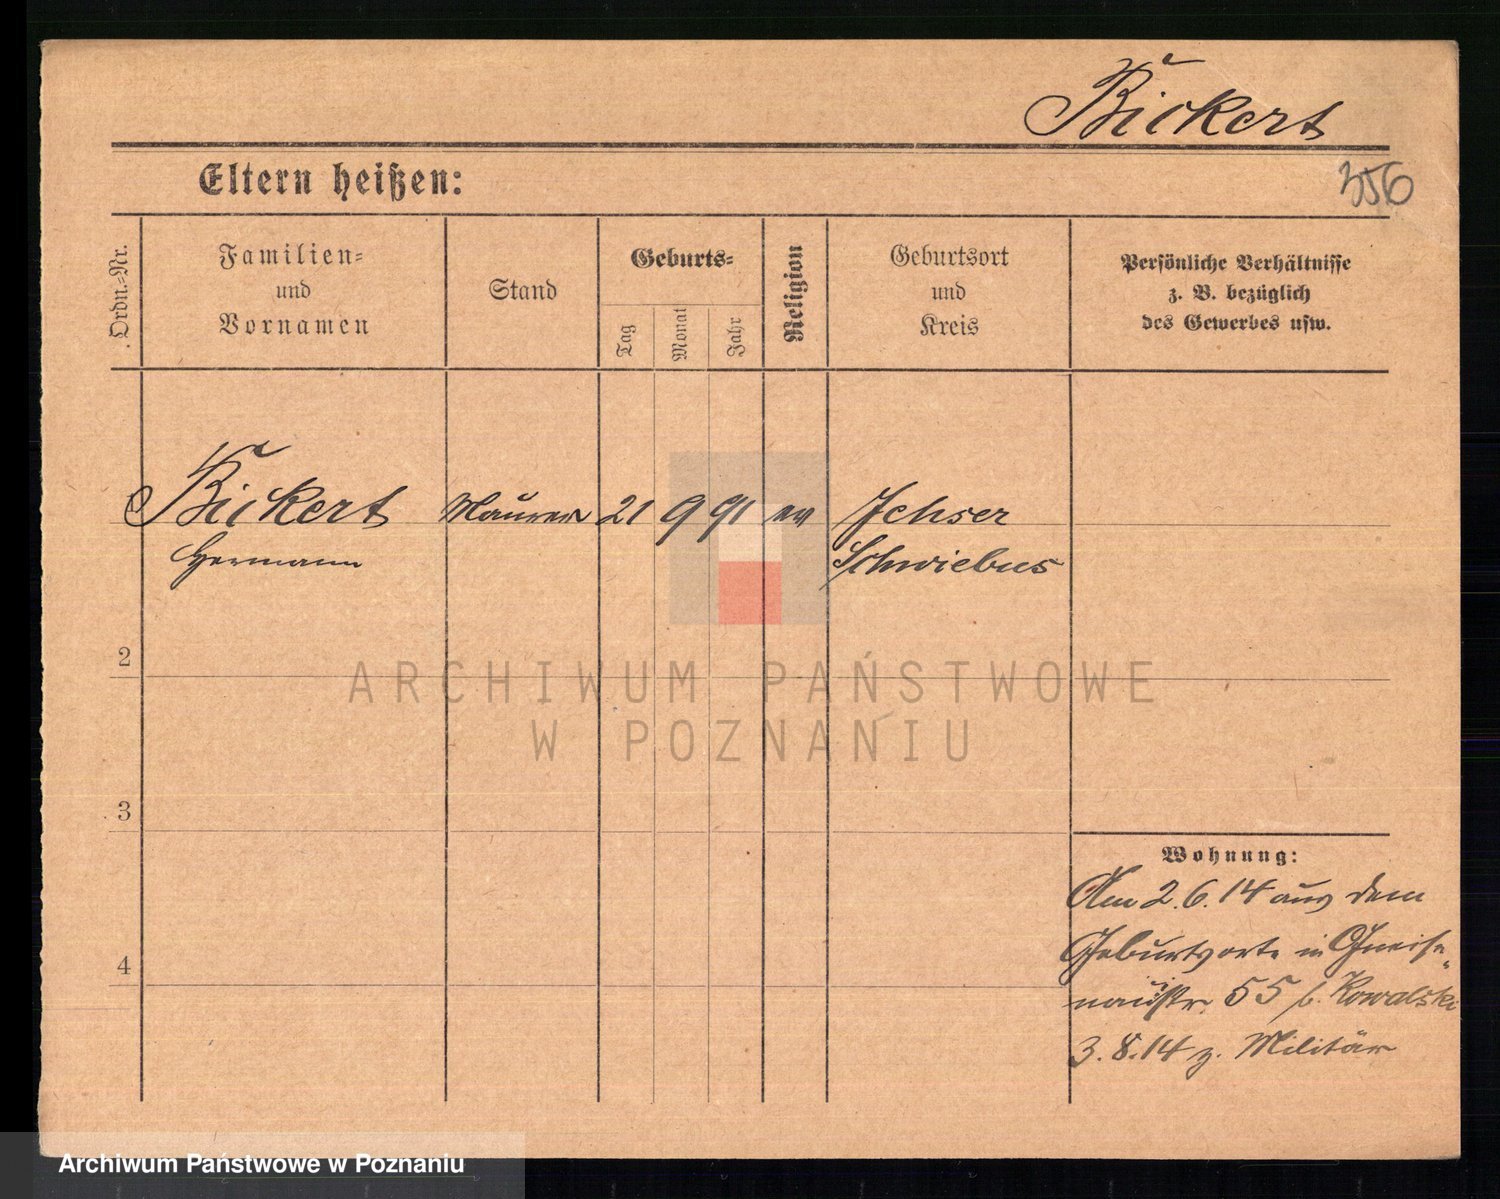 Bickert
Eltern heißen:
356
Ordn.-Nr.
Familien-
und
Vornamen
Stand
Geburts-
Tag
Monat
Jahr
Religion
Geburtsort
und
Kreis
Persönliche Verhältnisse
z. B. bezüglich
des Gewerbes usw.
Bickert Maurer 21 9 91 ev Jehser
Hermann Schwiebus
2
ARCHIWUM PAŃSTWOWE
W POZNANIU
3
Wohnung:
Am 2.6.14 aus dem
Geburtsorte in Gneise-
4
naustr. 55 b. Kowalski
3.8.14 z. Militär
Archiwum Państwowe w Poznaniu